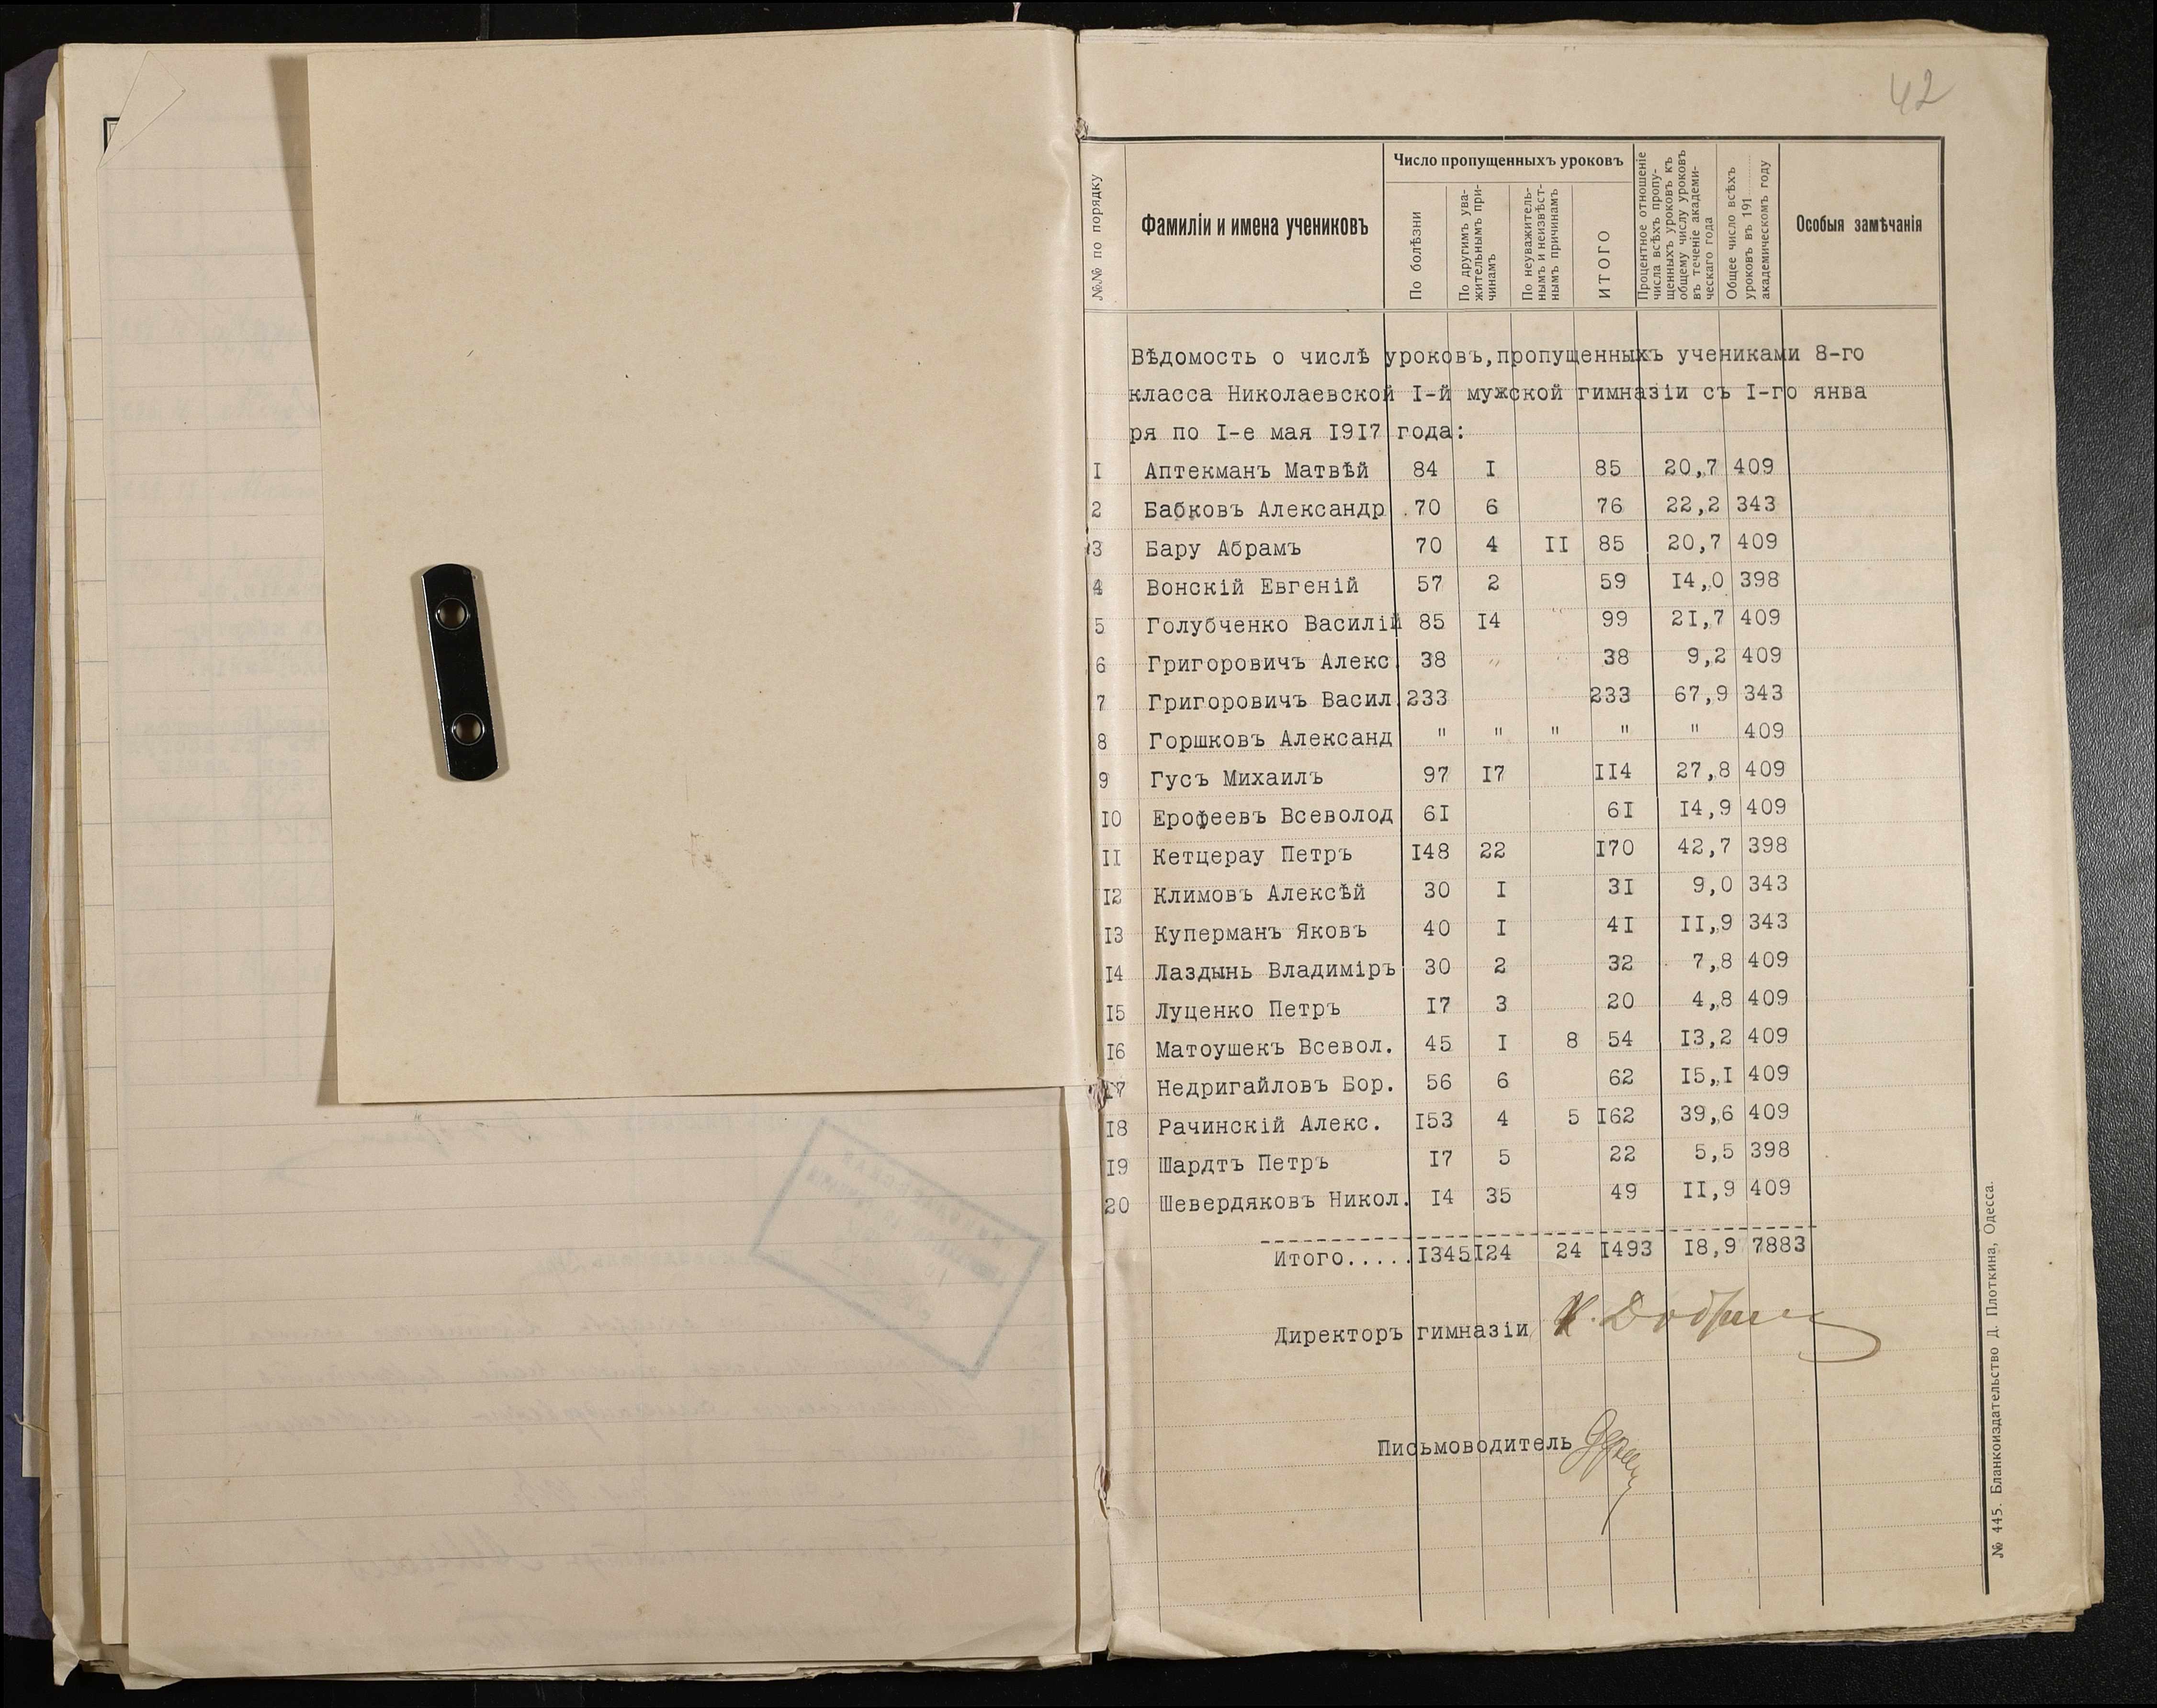 42
№№ по порядку
Фамиліи и имена учениковъ
Число пропущенныхъ уроковъ
По болѣзни
По другимъ ува-
жительнымъ при-
чинамъ
По неуважитель-
нымъ и неизвѣст-
нымъ причинамъ
ИТОГО
Процентное отношеніе
числа всѣхъ пропу-
щенныхъ уроковъ къ
общему числу уроковъ
въ теченіе академи-
ческаго года
Общее число всѣхъ
уроковъ въ 191
академическомъ году
Особыя замѣчанія
Вѣдомость о числѣ уроковъ,пропущенныхъ учениками 8-го
класса Николаевской I-й мужской гимназіи съ I-го янва
ря по I-е мая I9I7 года:
I Аптекманъ Матвѣй 84 I 85 20,7 409
2 Бабковъ Александр 70 6 76 22,2 343
3 Бару Абрамъ 70 4 II 85 20,7 409
4 Вонскій Евгеній 57 2 59 I4,0 398
5 Голубченко Василій 85 I4 " 99 2I,7 409
6 Григоровичъ Алекс. 38 " " 38 9,2 409
7 Григоровичъ Васил. 233 233 67,9 343
8 Горшковъ Александ " " " " " 409
9 Гусъ Михаилъ 97 I7 II4 27,8 409
I0 Ерофеевъ Всеволод 6I 6I I4,9 409
II Кетцерау Петръ I48 22 I70 42,7 398
I2 Климовъ Алексѣй 30 I 3I 9,0 343
I3 Куперманъ Яковъ 40 I 4I II,9 343
I4 Лаздынь Владиміръ 30 2 32 7,8 409
I5 Луценко Петръ I7 3 20 4,8 409
I6 Матоушекъ Всевол. 45 I 8 54 I3,2 409
I7 Недригайловъ Бор. 56 6 62 I5,I 409
I8 Рачинскій Алекс. I53 4 5 I62 39,6 409
I9 Шардтъ Петръ I7 5 22 5,5 398
20 Шевердяковъ Никол. I4 35 49 II,9 409
Итого..... I345 I24 24 I493 I8,9 7883
Директоръ гимназіи К.
Письмоводитель
№ 445. Бланкоиздательство Д. Плоткина, Одесса.